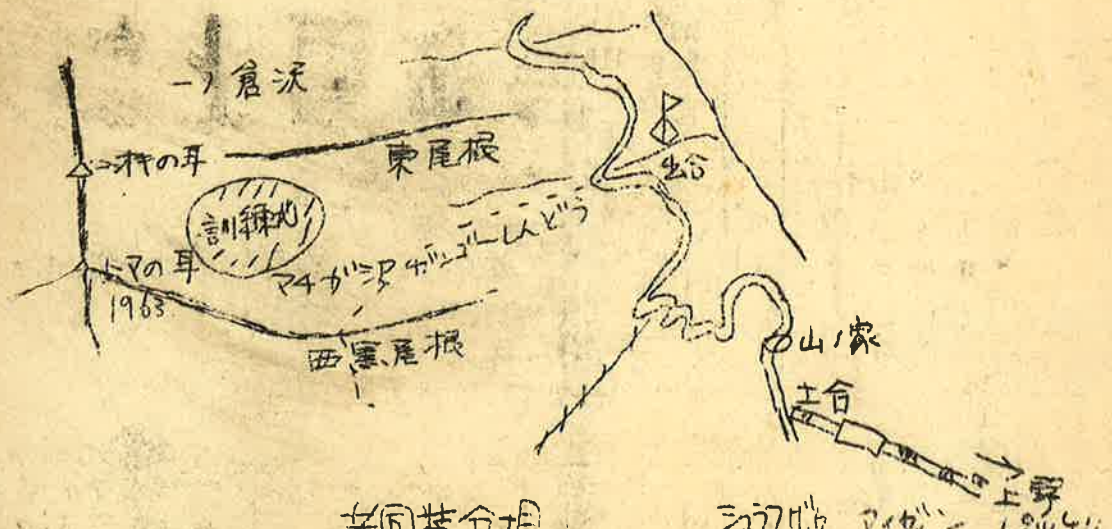 一ノ倉沢
オキの耳
東尾根
出合
訓練地
マチが沢
ガンゴーしんどう
トマの耳
1963
西黒尾根
山ノ家
土合
上野
共同装分担